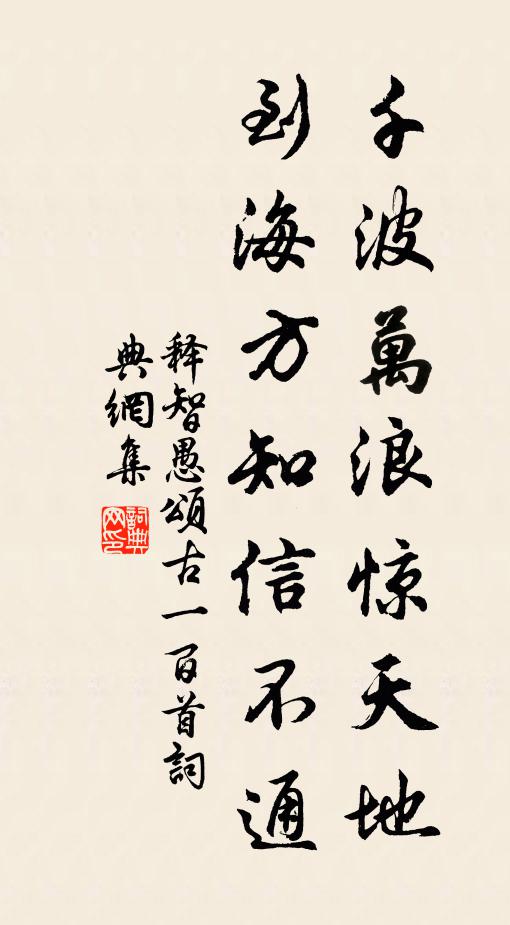 千波萬浪惊天地
到海方知信不通
释智愚頌古一百首詞
典網集
詞典網印